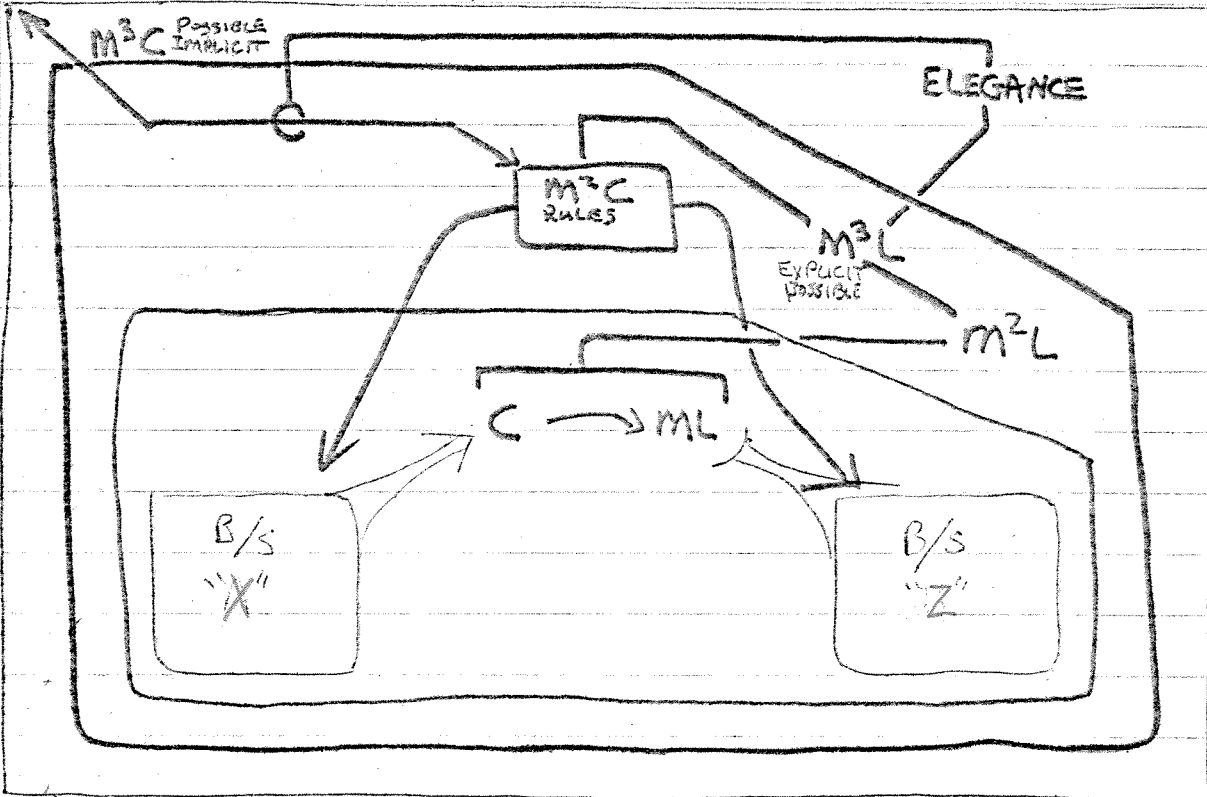 M³C POSSIBLE
IMPLICIT
ELEGANCE
C
M²C
RULES
M³L
EXPLICIT
POSSIBLE
M²L
C → ML
B/S
"X"
B/S
"Z"